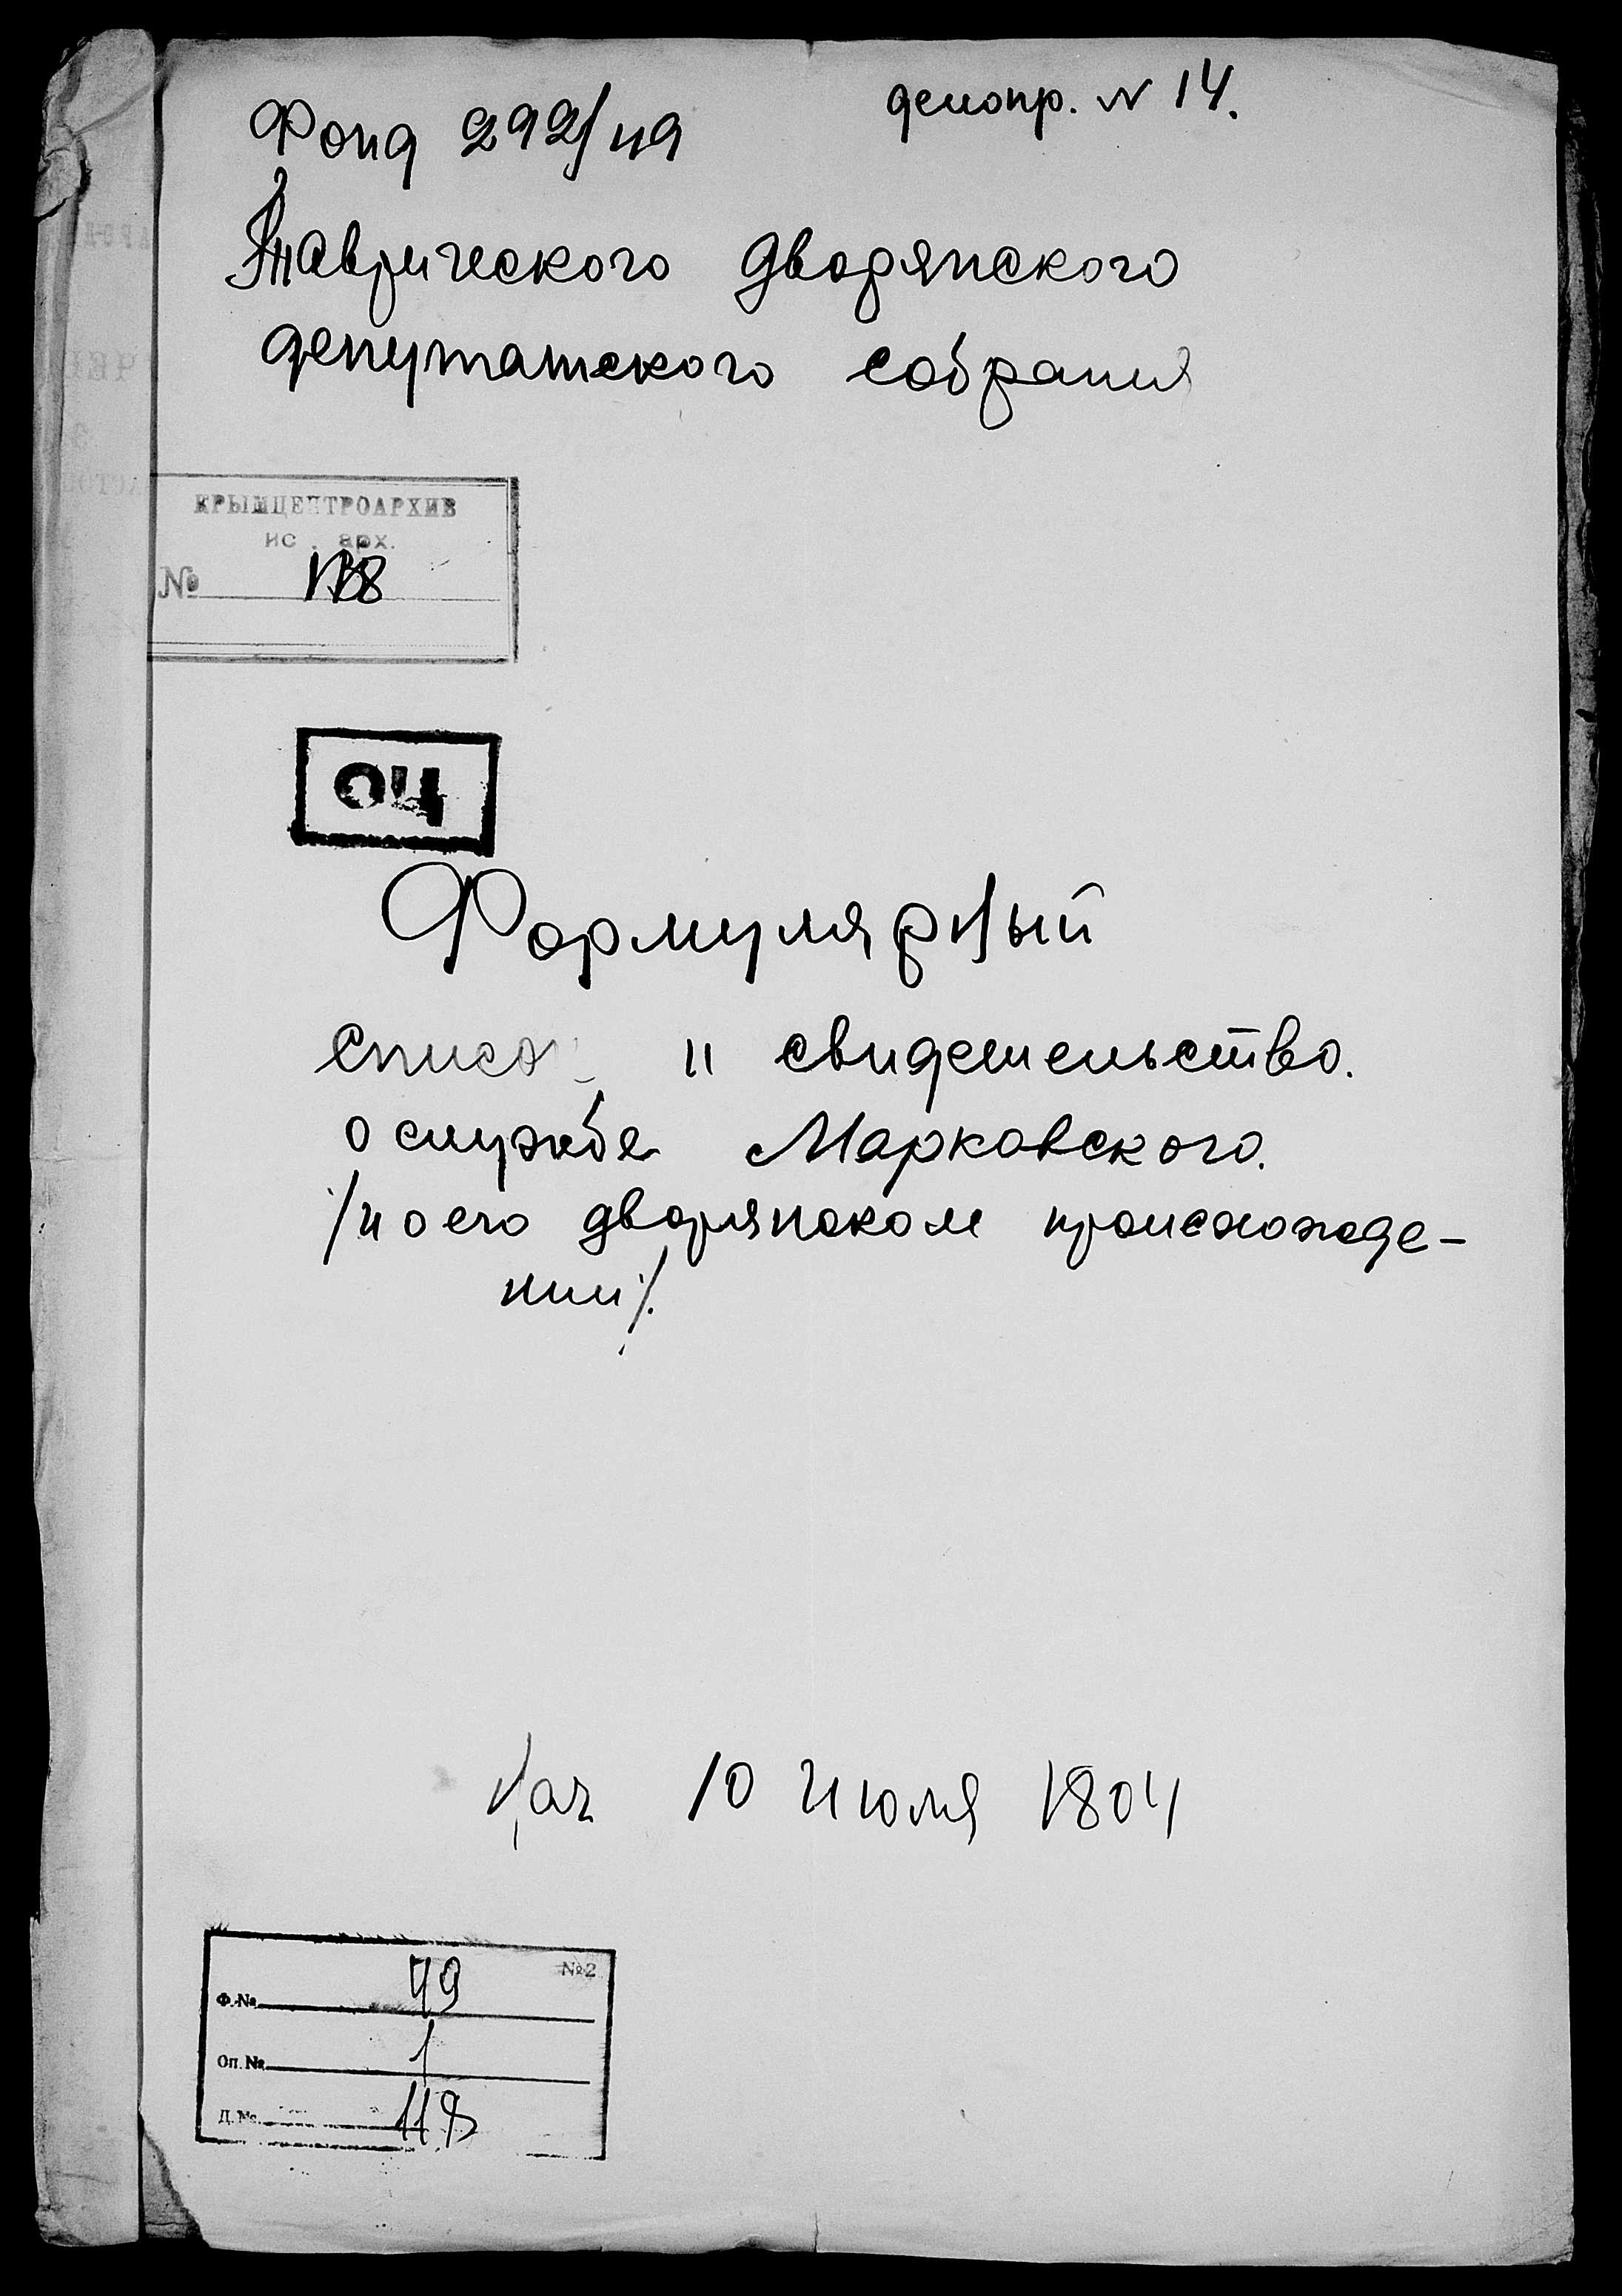 делопр. № 14.
Фонд 292/49
Таврического дворянского
депутатского собрания
КРЫМЦЕНТРОАРХИВ
ис . арх.
№
04
Формулярный
список и свидетельство.
о службе Марковского.
/и о его дворянском происхожде-
нии/.
Нач 10 Июля 1804
№2
Ф. № 49
Оп. № 1
Д. № 118